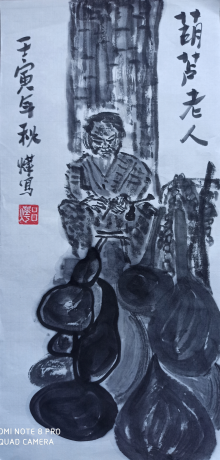 葫芦老人
壬寅年秋
煒写
REDMI NOTE 8 PRO
QUAD CAMERA